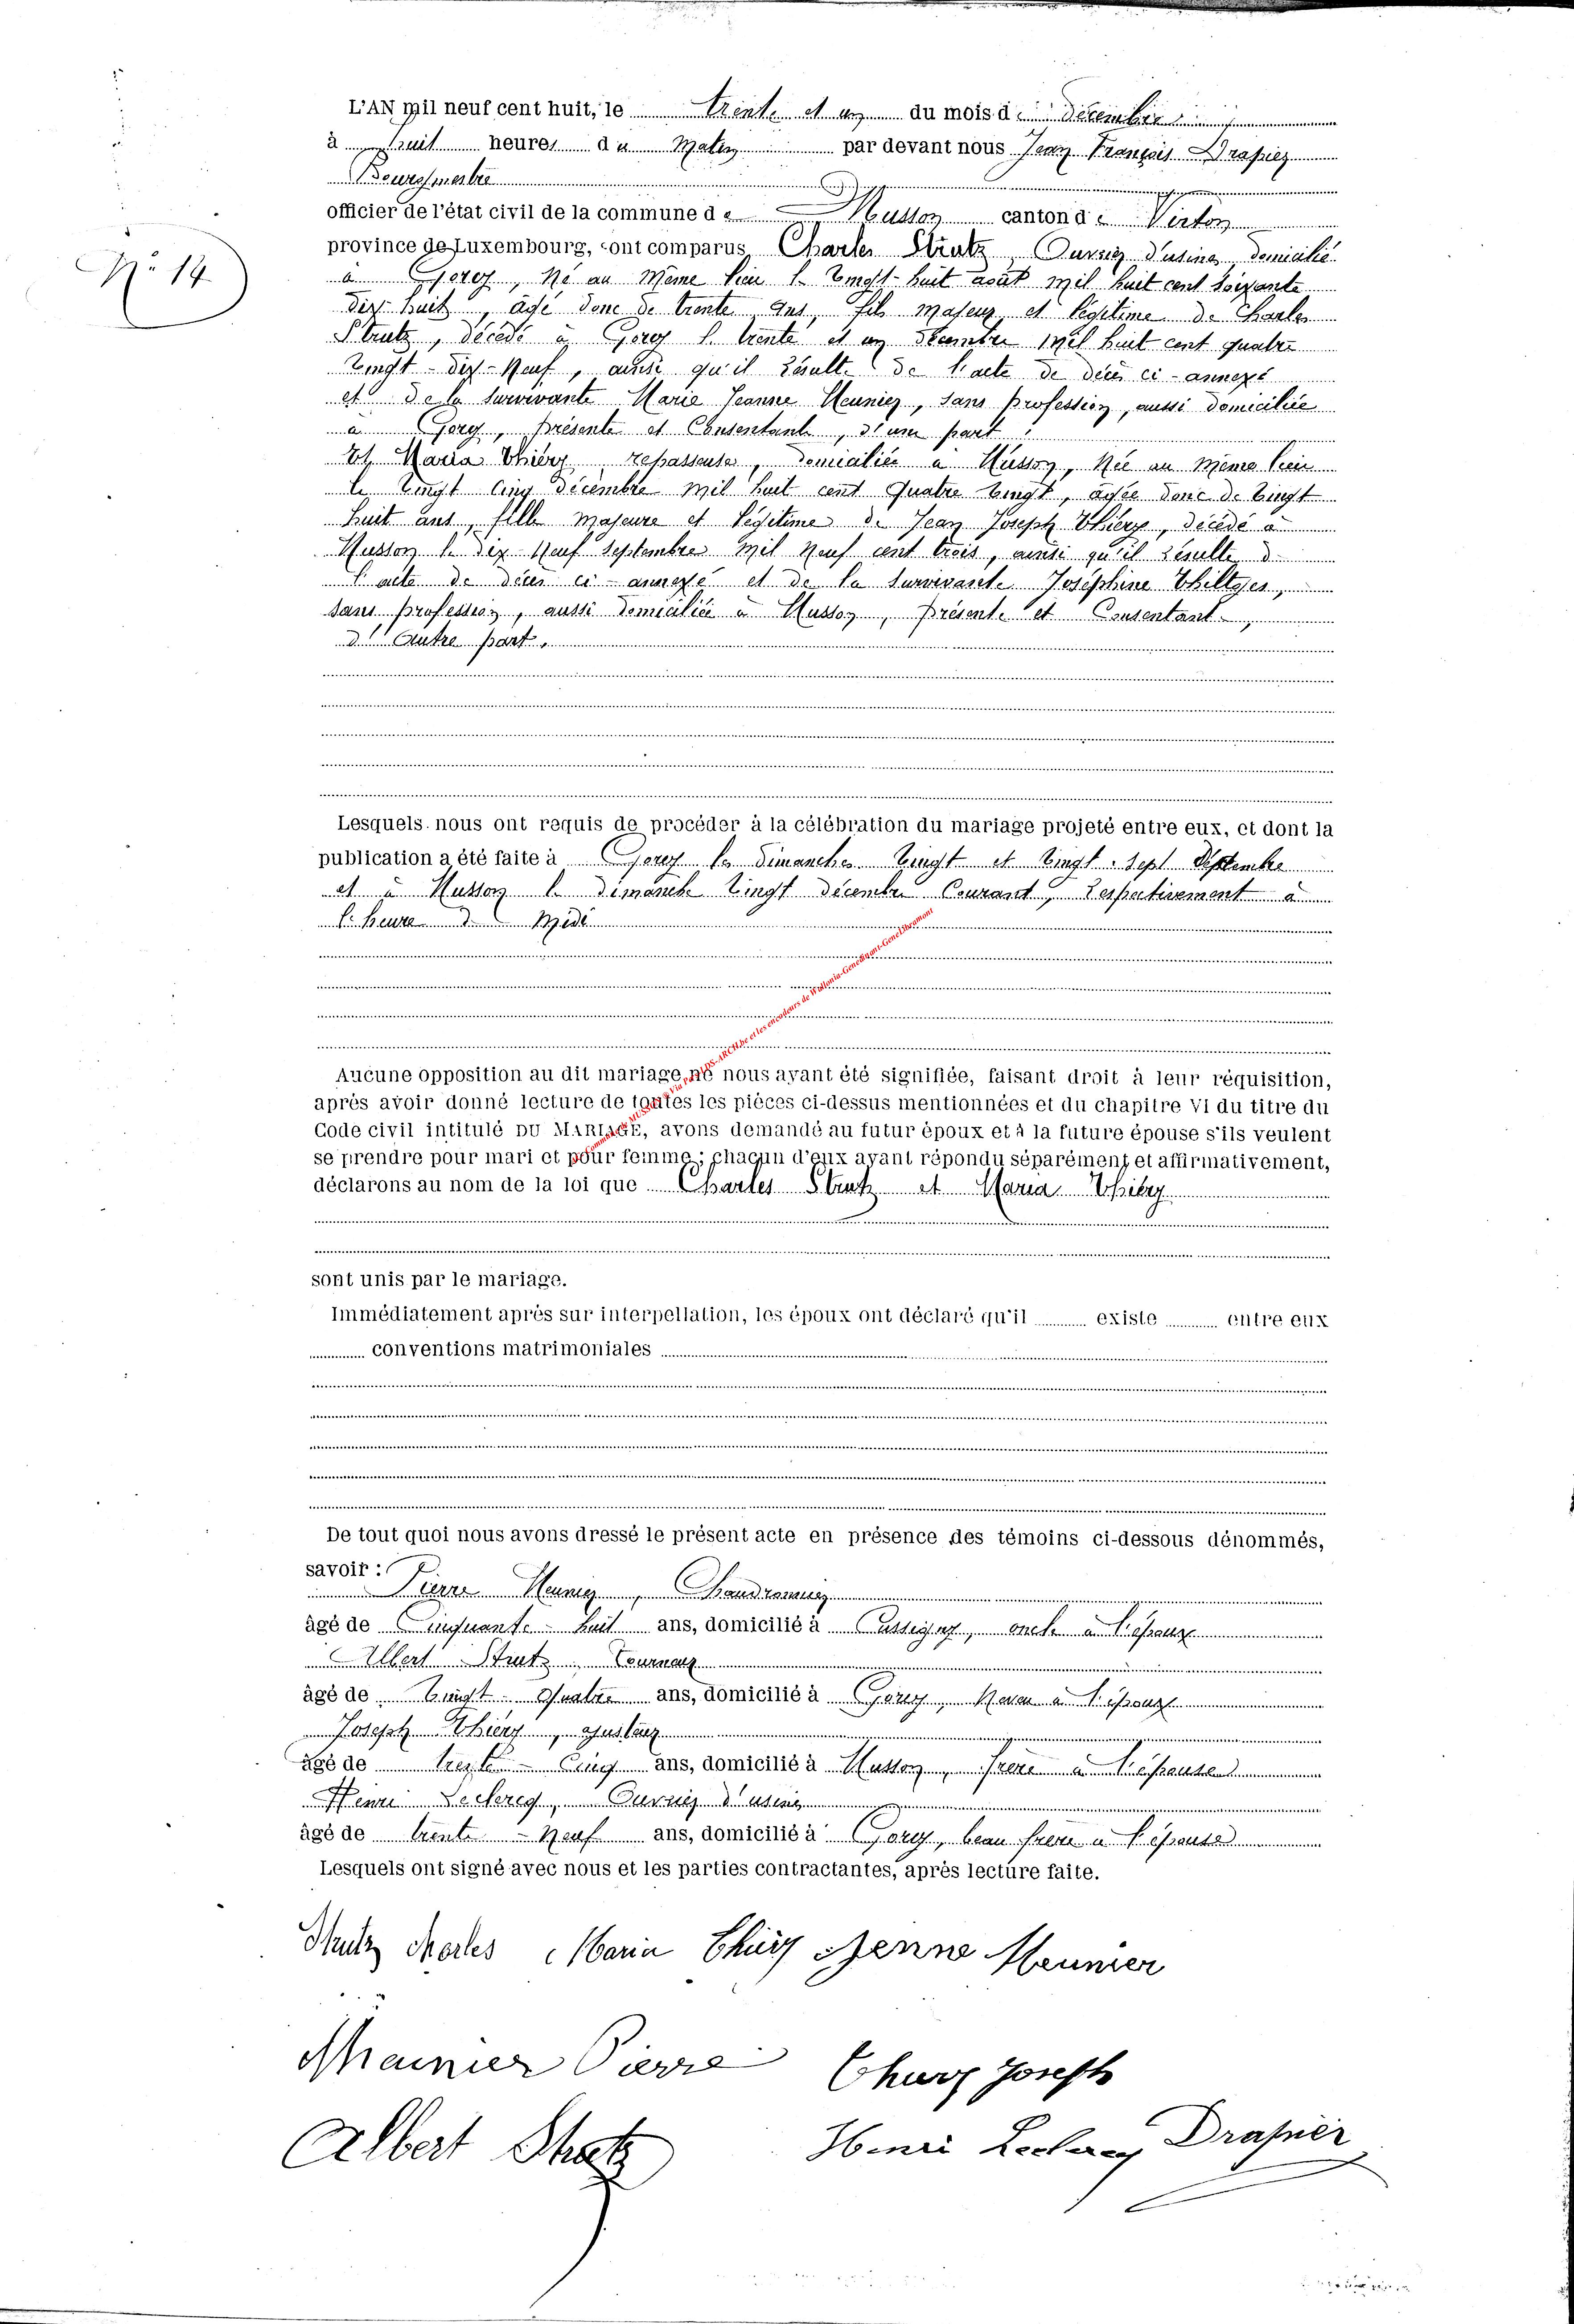 L'AN mil neuf cent huit, le trente et un du mois de décembre
à huit heures du Matin par devant nous Jean François Drapier
Bourgmestre
officier de l'état civil de la commune de Musson canton de Virton
province de Luxembourg, sont comparus Charles Strutz, Ouvrier d'usine, domicilié
N° 14
à Gorcy, Né au Même lieu le Vingt-huit août mil huit cent soixante
dix huit, âgé donc de trente Ans, fils Majeur et légitime de Charles
Strutz, décédé à Gorcy le trente et un décembre Mil huit cent quatre
Vingt-dix-Neuf, ainsi qu'il résulte de l'acte de décès ci-annexé
et de la survivante Marie Jeanne Meunier, sans profession, aussi domiciliée
à Gorcy, présente et Consentante, d'une part
Et Maria Thiéry, repasseuse, domiciliée à Musson, Née au Même lieu
le Vingt Cinq décembre Mil huit cent Quatre Vingt, âgée donc de Vingt
huit ans, fille Majeure et légitime de Jean Joseph Thiéry, décédé à
Musson le dix-Neuf septembre Mil Neuf cent trois, ainsi qu'il résulte de
l'acte de décès ci-annexé et de la survivante Joséphine Thiltges,
sans profession, aussi domiciliée à Musson, présente et Consentante,
d'Autre part,
Lesquels nous ont requis de procéder à la célébration du mariage projeté entre eux, et dont la
publication a été faite à Gorcy les dimanches Vingt et Vingt-sept Décembre
et à Musson le dimanche Vingt décembre Courant, respectivement à
l'heure de Midi
Aucune opposition au dit mariage ne nous ayant été signifiée, faisant droit à leur réquisition,
après avoir donné lecture de toutes les pièces ci-dessus mentionnées et du chapitre VI du titre du
Code civil intitulé DU MARIAGE, avons demandé au futur époux et à la future épouse s'ils veulent
se prendre pour mari et pour femme; chacun d'eux ayant répondu séparément et affirmativement,
déclarons au nom de la loi que Charles Strutz et Maria Thiéry
sont unis par le mariage.
Immédiatement après sur interpellation, les époux ont déclaré qu'il existe entre eux
conventions matrimoniales
De tout quoi nous avons dressé le présent acte en présence des témoins ci-dessous dénommés,
savoir :
Pierre Meunier, Chaudronnier
âgé de Cinquante-huit ans, domicilié à Cussigny, oncle à l'époux
Albert Strutz, Tourneur
âgé de Vingt-Quatre ans, domicilié à Gorcy, Neveu à l'époux
Joseph Thiéry, ajusteur
âgé de trente-Cinq ans, domicilié à Musson, frère à l'épouse
Henri Leclercq, Ouvrier d'usine
âgé de trente-Neuf ans, domicilié à Gorcy, beau frère à l'épouse
Lesquels ont signé avec nous et les parties contractantes, après lecture faite.
Strutz Charles Maria Thiéry Jenne Meunier
Mainier Pierre Thiery Joseph
Albert Strutz Henri Leclercq Drapier